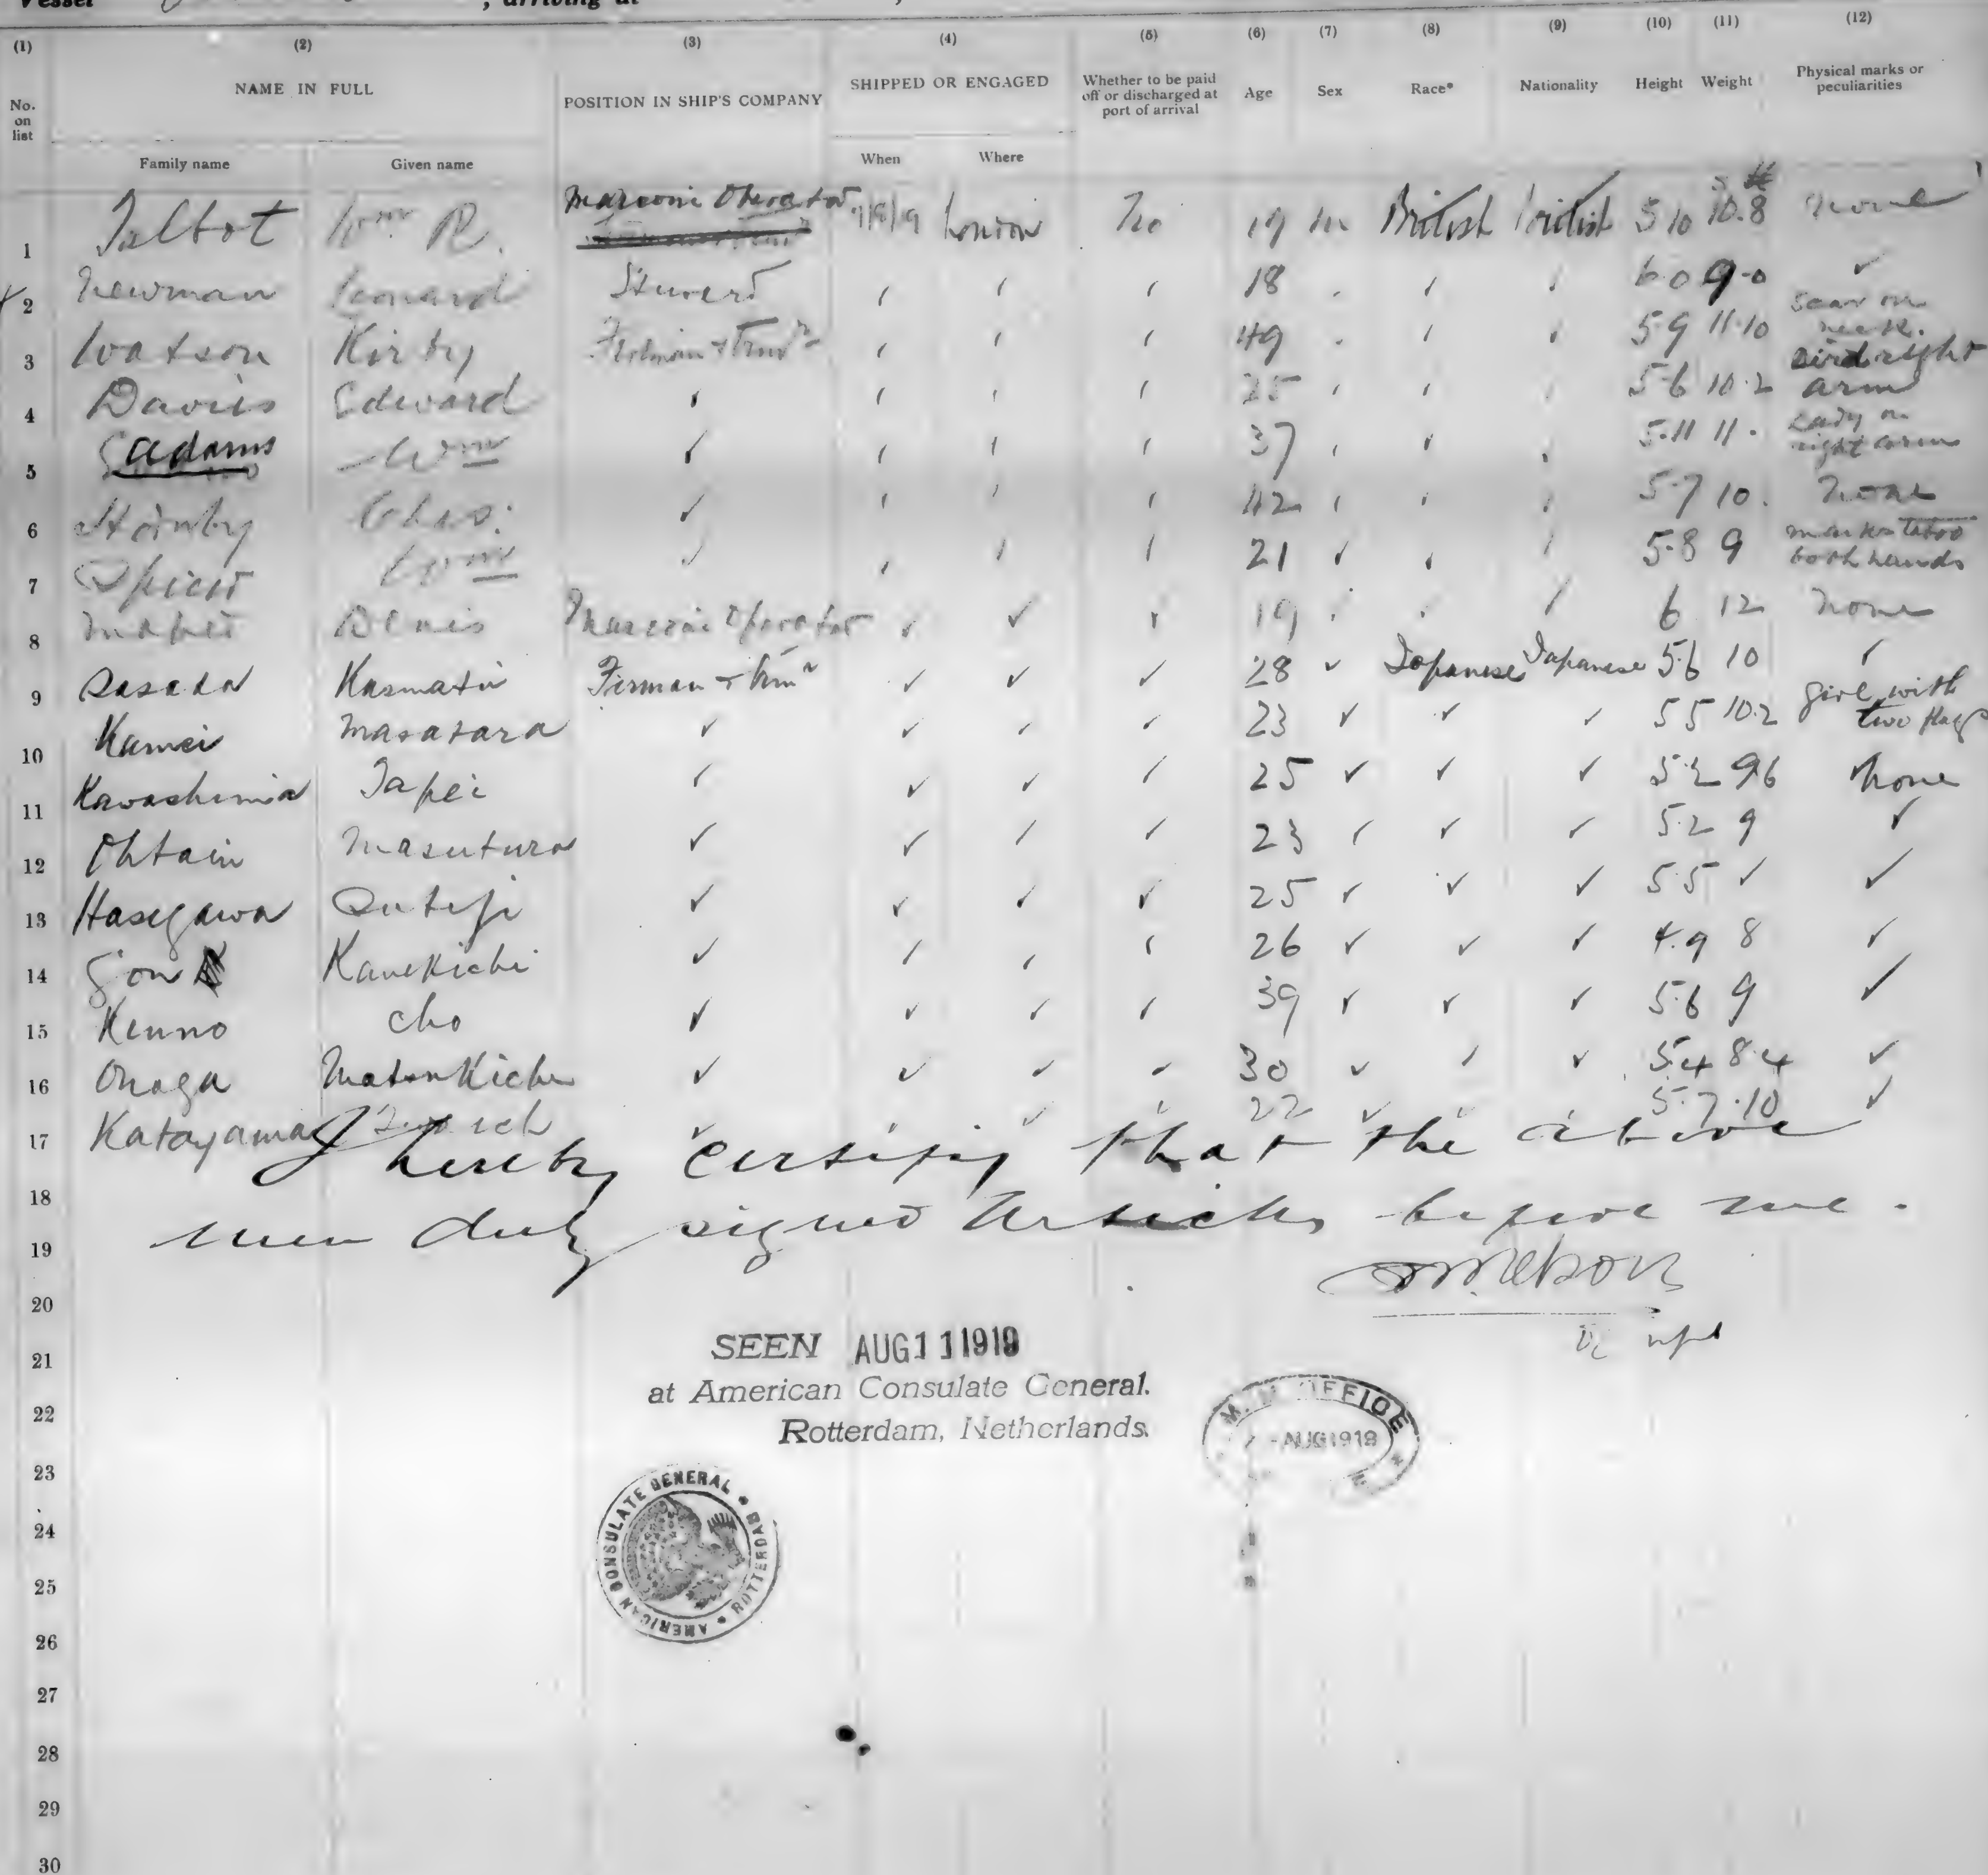 Vessel , arriving at ,
(1) (2) (3) (4) (5) (6) (7) (8) (9) (10) (11) (12)
No. on list NAME IN FULL POSITION IN SHIP'S COMPANY SHIPPED OR ENGAGED Whether to be paid off or discharged at port of arrival Age Sex Race* Nationality Height Weight Physical marks or peculiarities
Family name Given name When Where
1 Talbot Wm R. Marconi Operator London No 19 M British British 5 10 10.8 None
2 Newman Leonard Steward 18 6 0 9-0 ✓
3 Watson Kirby 49 5.9 11.10 Scar on neck.
4 Davies Edward 25 5.6 10.2 Bird right arm
5 Adams Wm 37 5.11 11 Lady on right arm
6 Hornby Chas. ✓ 42 5.7 10. None
7 Spicer Wm ✓ 21 ✓ 5.8 9 marks tatoo both hands
8 Denis Marconi Operator ✓ ✓ 19 6 12 None
9 Sasada Kasmatu Firman + Trimr ✓ ✓ ✓ 28 ✓ Japanese Japanese 5.6 10
10 Kamei Masatara ✓ ✓ ✓ ✓ 23 ✓ ✓ ✓ 5 5 10.2 girl with two flags
11 Kawashima Tapei ✓ ✓ ✓ ✓ 25 ✓ ✓ ✓ 5.2 9.6 None
12 Ohtain Masutura ✓ ✓ ✓ ✓ 23 ✓ ✓ ✓ 5.2 9 ✓
13 Hasegawa Suteji ✓ ✓ ✓ ✓ 25 ✓ ✓ ✓ 5.5 ✓ ✓
14 Gon Kanekichi ✓ ✓ ✓ ✓ 26 ✓ ✓ ✓ 4.9 8 ✓
15 Kenno Cho ✓ ✓ ✓ ✓ 39 ✓ ✓ ✓ 5.6 9 ✓
16 Onaga Matsukichi ✓ ✓ ✓ ✓ 30 ✓ ✓ ✓ 5.4 8.4 ✓
17 Katayama ✓ ✓ ✓ 22 ✓ ✓ ✓ 5.7 .10 ✓
I hereby certify that the above
18
men duly signed Articles before me.
19
20
21
SEEN AUG 11 1919
at American Consulate General.
22
Rotterdam, Netherlands.
M. M. OFFICE
AUG 1919
23
AMERICAN CONSULATE GENERAL • ROTTERDAM •
24
25
26
27
28
29
30